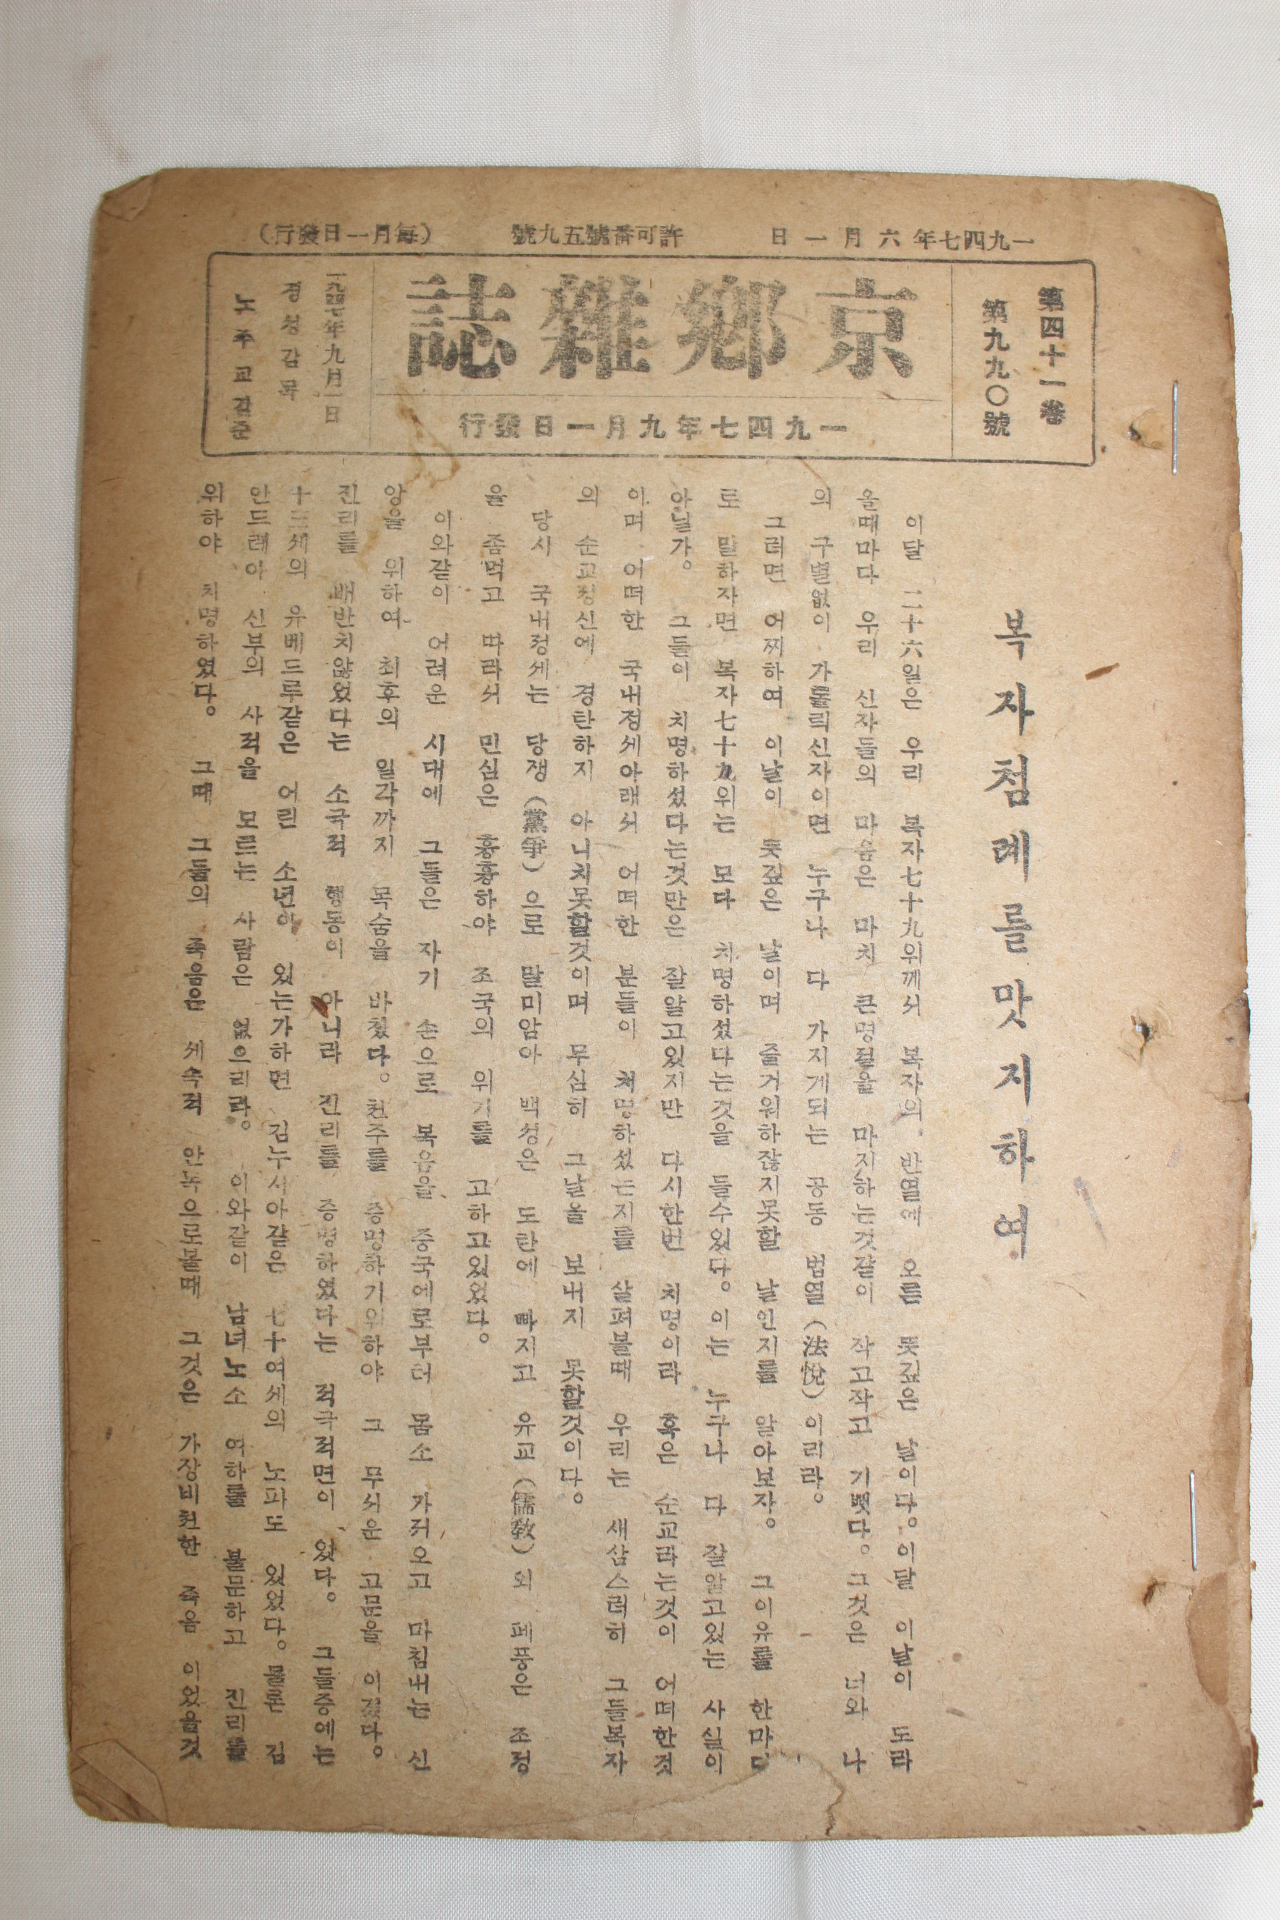 一九四七年六月一日
許可番號五九號
(每月一日發行)
第四十一卷
第九九〇號
京鄕雜誌
一九四七年九月一日發行
一九四七年九月一日
경성감목
노주교감준
복자첨례를맛지하여
이달 二十六일은 우리 복자七十九위께서 복자의 반열에 오른 뜻깊은 날이다。이달 이날이 도라
올때마다 우리 신자들의 마음은 마치 큰명절을 마지하는것같이 작고작고 기뻣다。그것은 너와 나
의 구별없이 가톨릭신자이면 누구나 다 가지게되는 공동 법열(法悅)이리라。
그러면 어찌하여 이날이 뜻깊은 날이며 줄거워하잖지못할 날인지를 알아보자。 그이유를 한마디
로 말하자면 복자七十九위는 모다 치명하섰다는것을 들수있다。이는 누구나 다 잘알고있는 사실이
아닐가。 그들이 치명하섰다는것만은 잘알고있지만 다시한번 치명이라 혹은 순교라는것이 어떠한것
이며 어떠한 국내정세아래서 어떠한 분들이 치명하섰는지를 살펴볼때 우리는 새삼스러히 그들복자
의 순교정신에 경탄하지 아니치못할것이며 무심히 그날을 보내지 못할것이다。
당시 국내정세는 당쟁(黨爭)으로 말미암아 백성은 도탄에 빠지고 유교(儒敎)의 폐풍은 조정
을 좀먹고 따라서 민심은 흉흉하야 조국의 위기를 고하고있었다。
이와같이 어려운 시대에 그들은 자기 손으로 복음을 중국에로부터 몸소 가저오고 마침내는 신
앙을 위하여 최후의 일각까지 목숨을 바첬다。천주를 증명하기위하야 그 무서운 고문을 이겼다。
진리를 배반치않었다는 소극적 행동이 아니라 진리를 증명하였다는 적극적면이 있다。 그들중에는
十三세의 유베드루같은 어린 소년이 있는가하면 김누시아같은 七十여세의 노파도 있었다。물론 김
안드레아 신부의 사적을 모르는 사람은 없으리라。 이와같이 남녀노소 여하를 불문하고 진리를
위하야 치명하였다。 그때 그들의 죽음은 세속적 안목으로볼때 그것은 가장비천한 죽음 이었을것